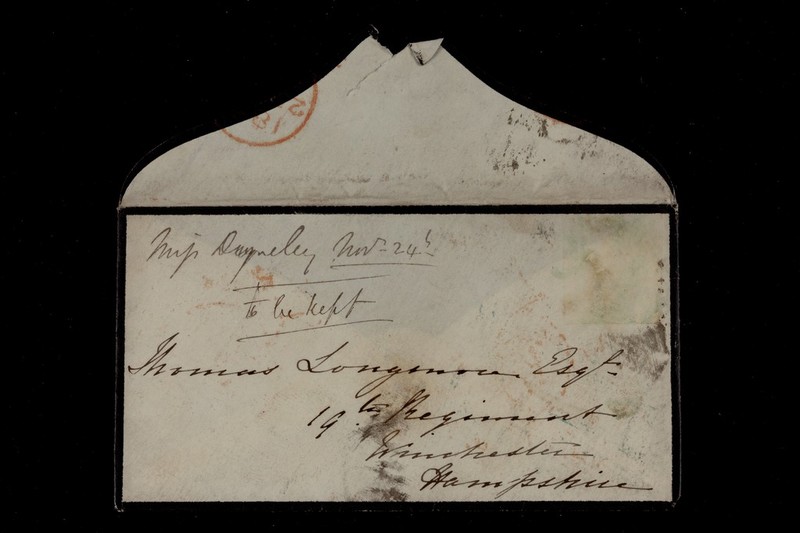 Miss Dyneley Novr 24th
to be kept
Thomas Longmore Esqr
19th Regiment
Winchester
Hampshire